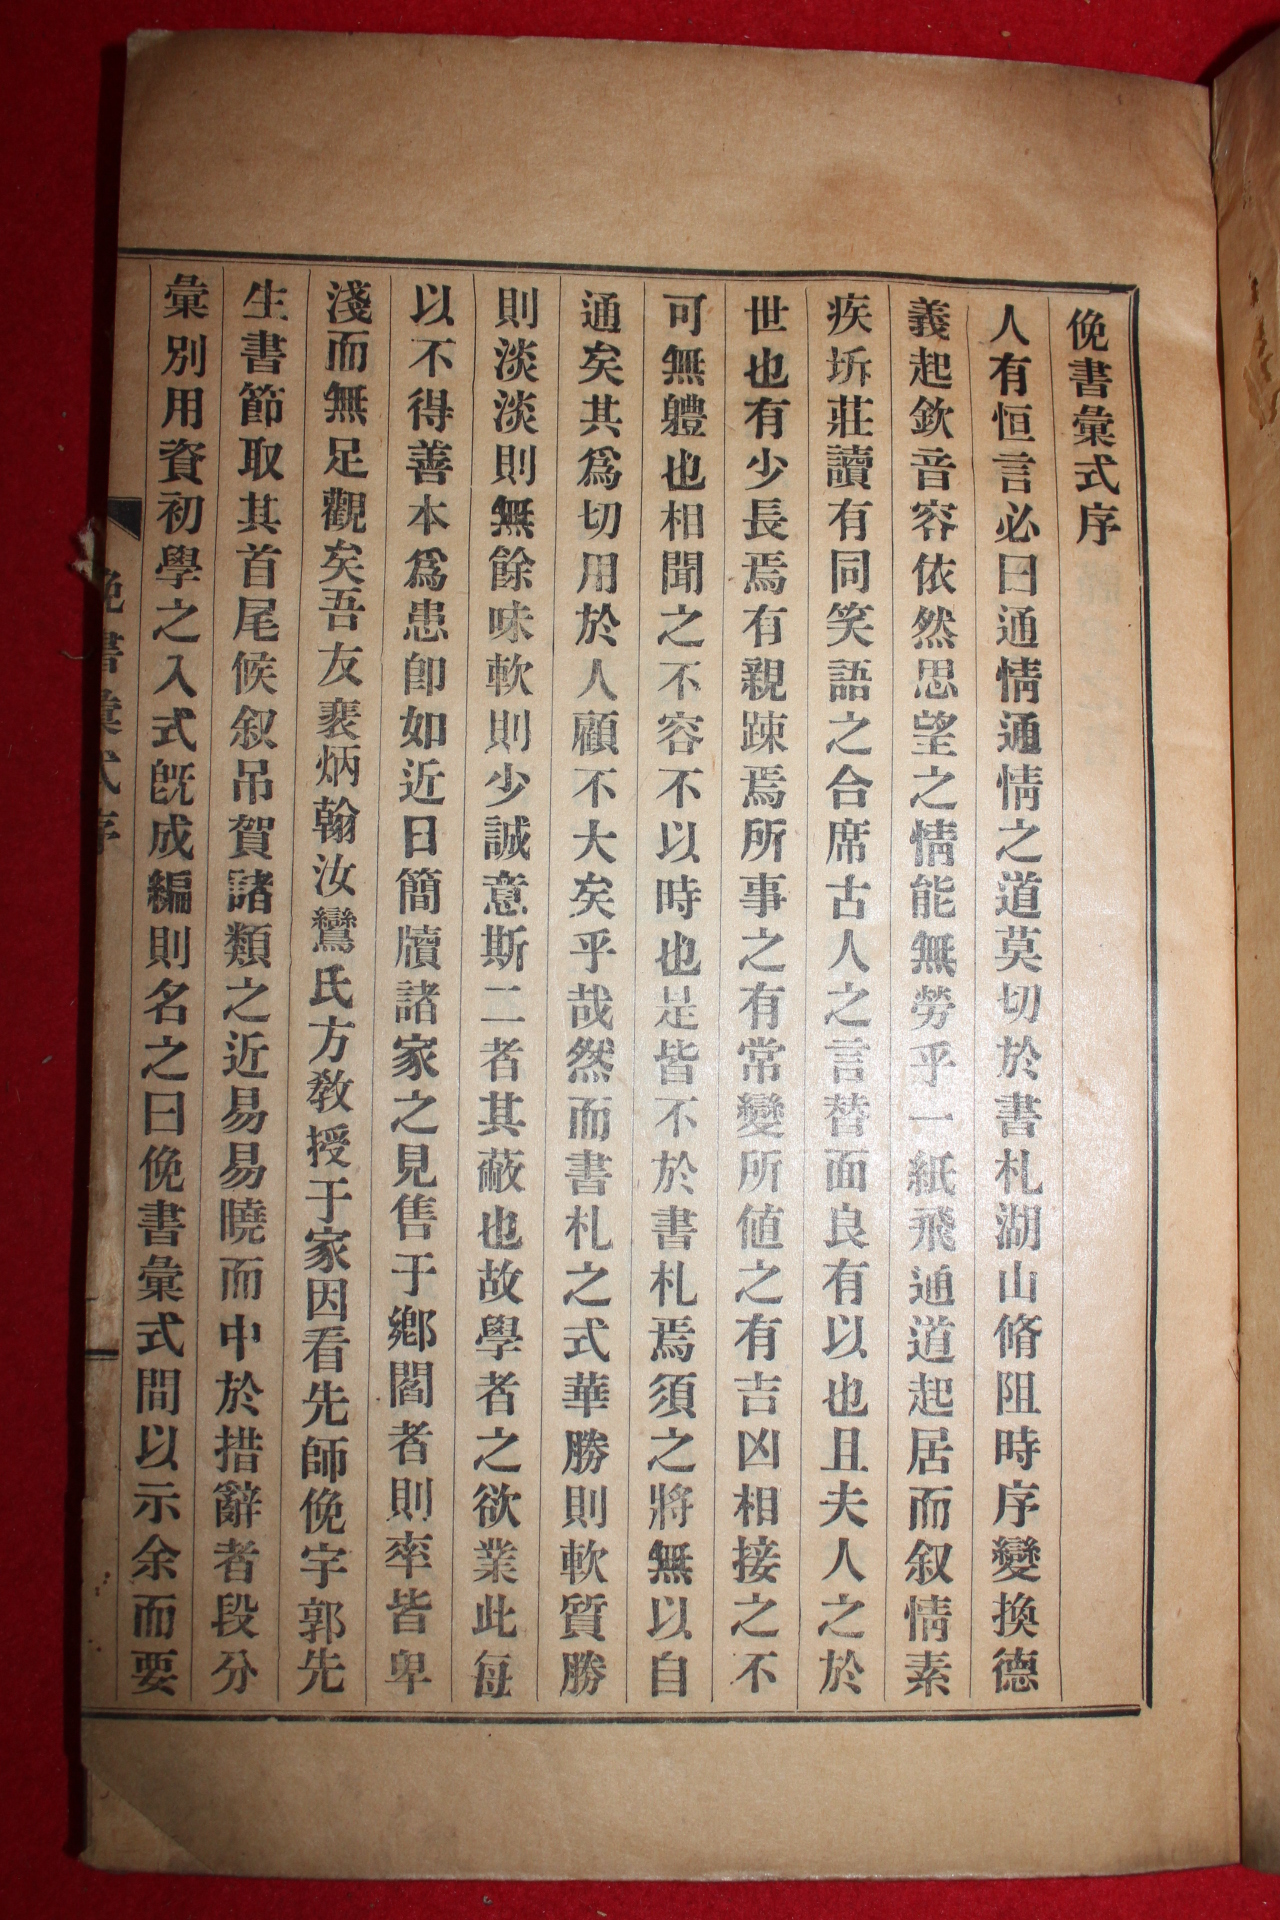 俛書彙式序
人有恒言必曰通情通情之道莫切於書札湖山脩阻時序變換德
義起欽音容依然思望之情能無勞乎一紙飛通道起居而叙情素
疾坼莊讀有同笑語之合席古人之言替面良有以也且夫人之於
世也有少長焉有親踈焉所事之有常變所値之有吉凶相接之不
可無軆也相聞之不容不以時也是皆不於書札焉須之將無以自
通矣其爲切用於人顧不大矣乎哉然而書札之式華勝則軟質勝
則淡淡則無餘味軟則少誠意斯二者其蔽也故學者之欲業此每
以不得善本爲患卽如近日簡牘諸家之見售于鄕閭者則率皆卑
淺而無足觀矣吾友裵炳翰汝鸞氏方敎授于家因看先師俛宇郭先
生書節取其首尾候叙吊賀諸類之近易易曉而中於措辭者段分
彙別用資初學之入式旣成編則名之曰俛書彙式間以示余而要
俛書彙式序